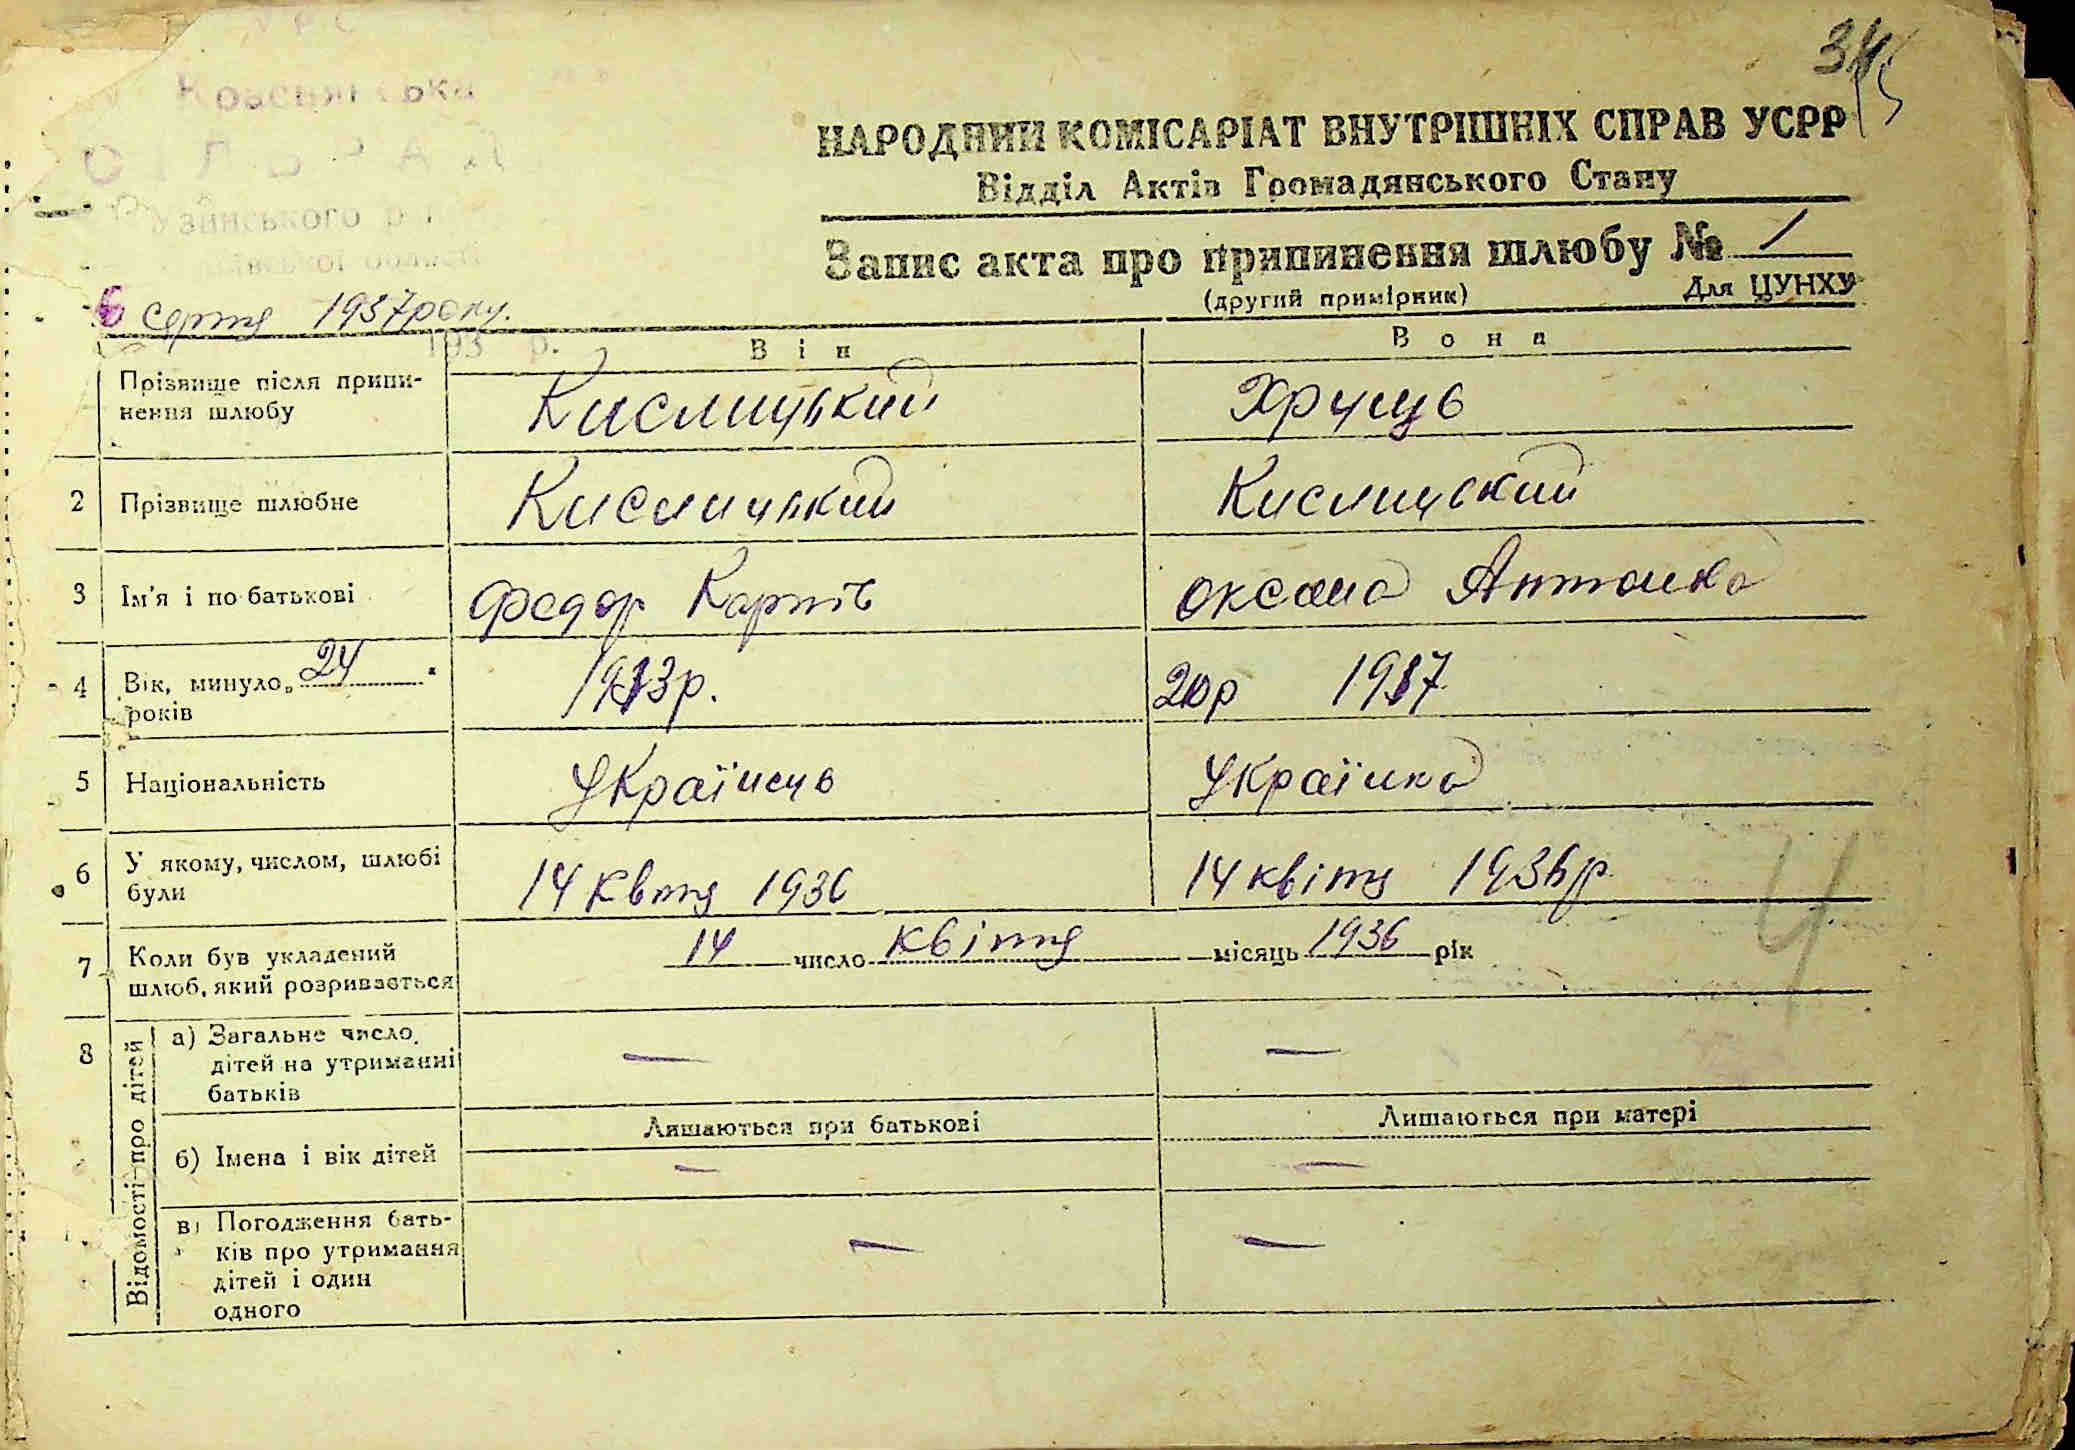 УРС
СІЛЬРАД
Узинського
області
НАРОДНИЙ КОМІСАРІАТ ВНУТРІШНІХ СПРАВ УСРР
Відділ Актів Громадянського Стану
Запис акта про припинення шлюбу № 1
(другий примірник) Для ЦУНХУ
6 серпня 1937 року.
193 р.
Він Вона
Прізвище після припи-
нення шлюбу Кислицький Хрущь
2 Прізвище шлюбне Кислицький Кислицький
3 Ім'я і по батькові Федор Карпів Оксана Антонова
4 Вік, минуло 24 1913р. 20р 1917
років
5 Національність Українець Українка
6 У якому, числом, шлюбі
були 14 квтня 1936 14 квітня 1936р.
7 Коли був укладений
шлюб, який розривається 14 число квітня місяць 1936 рік
8 Відомості про дітей
а) Загальне число
дітей на утриманні
батьків — —
Лишаються при батькові Лишаються при матері
б) Імена і вік дітей — —
в) Погодження бать-
ків про утримання
дітей і один
одного — —
4